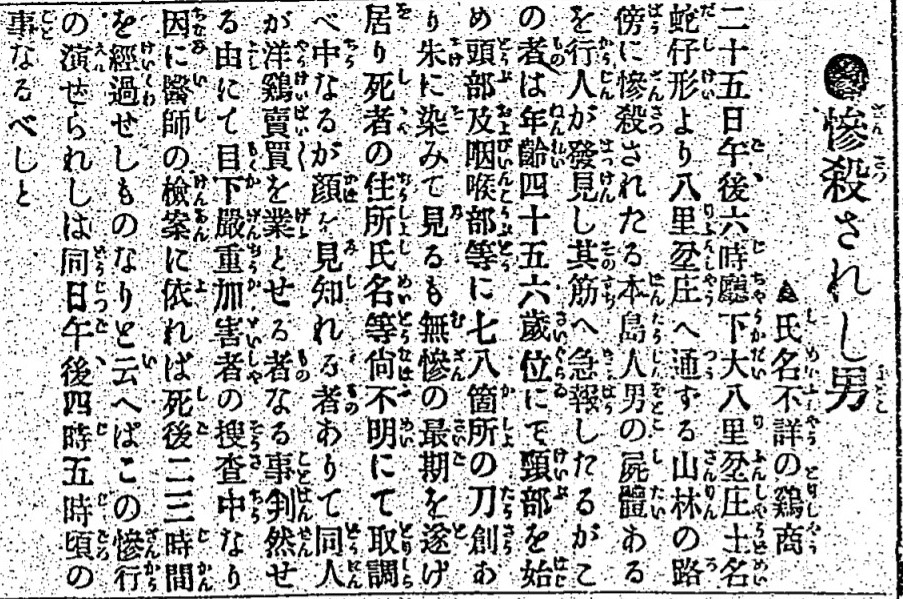 惨殺されし男
▲氏名不詳の鶏商
二十五日午後六時廳下大八里坌庄土名
蛇仔形より八里坌庄へ通ずる山林の路
傍に惨殺されたる本島人男の屍體ある
を行人が發見し其筋へ急報したるがこ
の者は年齡四十五六歲位にて頸部を始
め頭部及咽喉部等に七八箇所の刀創あ
り朱に染みて見るも無慘の最期を遂げ
居り死者の住所氏名等尙不明にて取調
べ中なるが顔を見知れる者ありて同人
が洋鷄賣買を業とせる者なる事判然せ
る由にて目下嚴重加害者の搜査中なり
因に醫師の檢案に依れば死後二三時間
を經過せしものなりと云へばこの慘行
の演せられしは同日午後四時五時頃の
事なるべしと